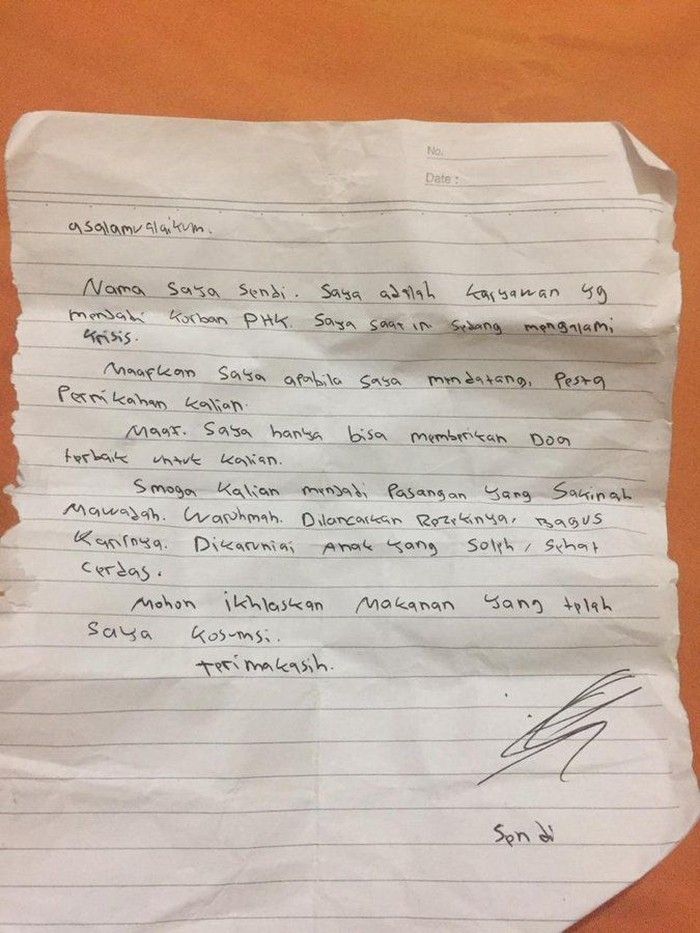 No.
Date :
asalamualaikum.
Nama saya Sendi. Saya adalah karyawan yg
menjadi korban PHK. Saya saat ini sedang mengalami
krisis.
Maapkan saya apabila saya mendatangi Pesta
Pernikahan kalian.
Maaf. Saya hanya bisa memberikan Doa
terbaik untuk kalian.
Smoga kalian menjadi Pasangan yang Sakinah
Mawadah. Warohmah. Dilancarkan Rezekinya, Bagus
Karirnya. Dikaruniai Anak yang Soleh, Sehat
Cerdas.
Mohon ikhlaskan Makanan yang telah
saya kosumsi.
Terimakasih.
Sendi